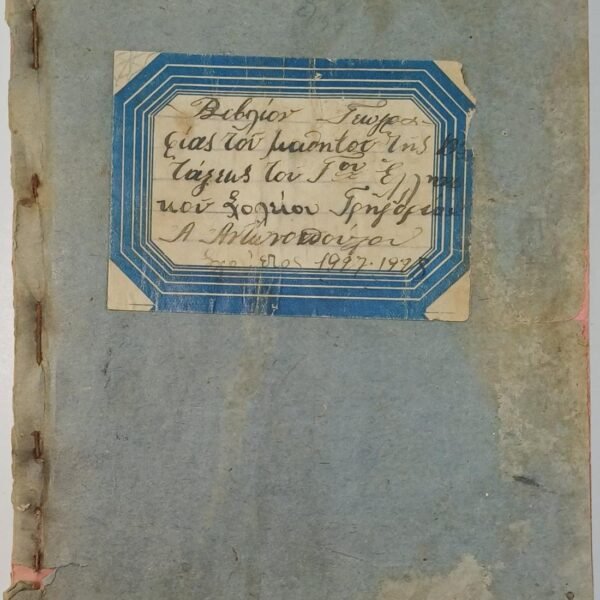 Βιβλίον Γεωγρα-
φίας τοῦ μαθητοῦ τῆς
τάξεως τοῦ Γου Ἑλληνι
κοῦ Σχολείου Γρηγορίου
Α Αντωνοπούλου
Σχολ. ἔτος 1927-1928